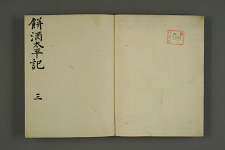 餅酒太平記
三